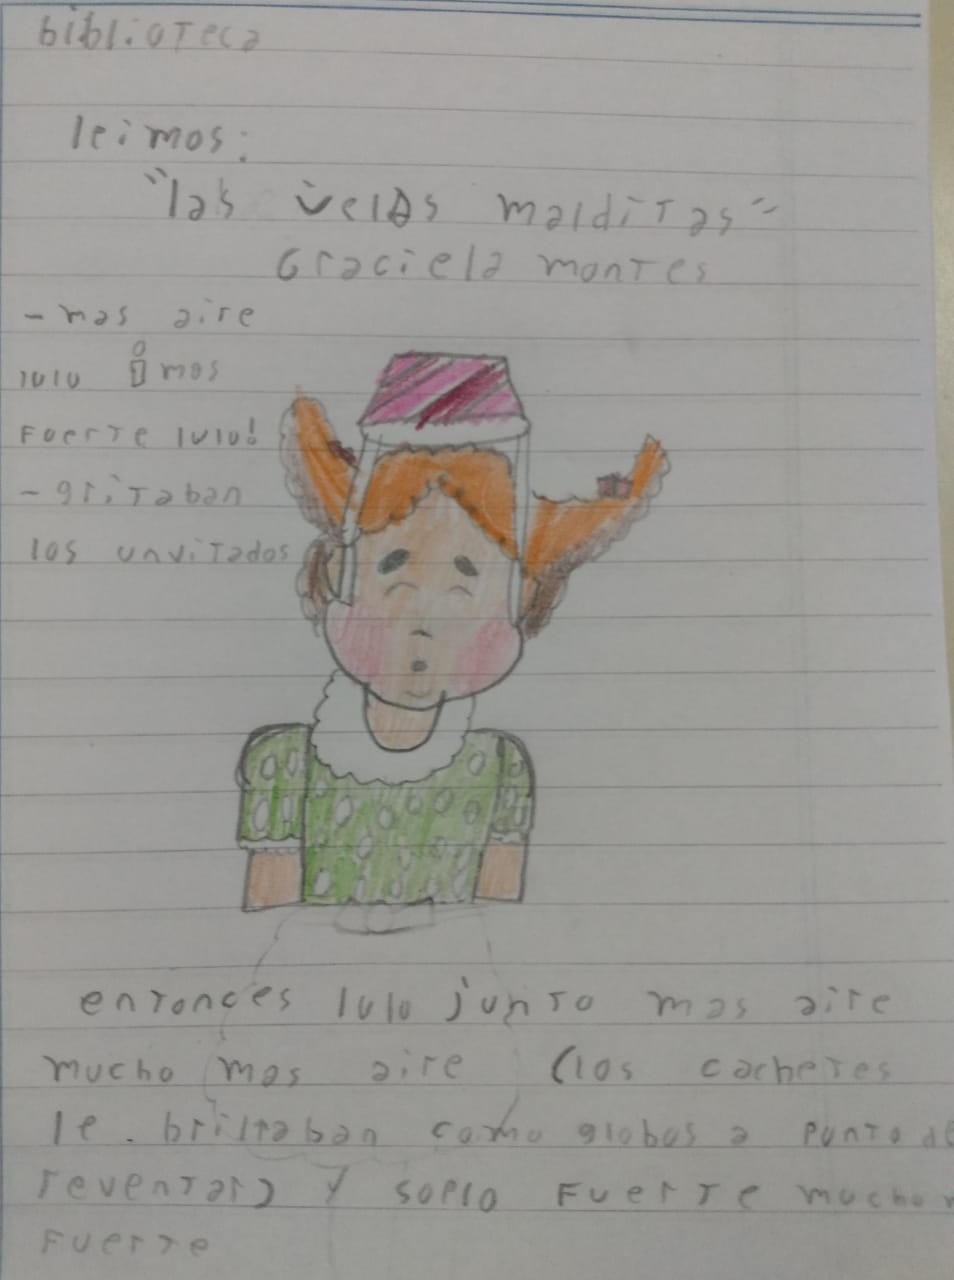 biblioteca
leimos:
"las velas malditas"
Graciela montes
- mas aire
lulu ¡mas
Fuerte lulu!
- gritaban
los unvitados
entonces lulu junto mas aire
mucho mas aire (los cachetes
le briltaban como globos a punto de
reventar) y soplo Fuerte mucho
Fuerte